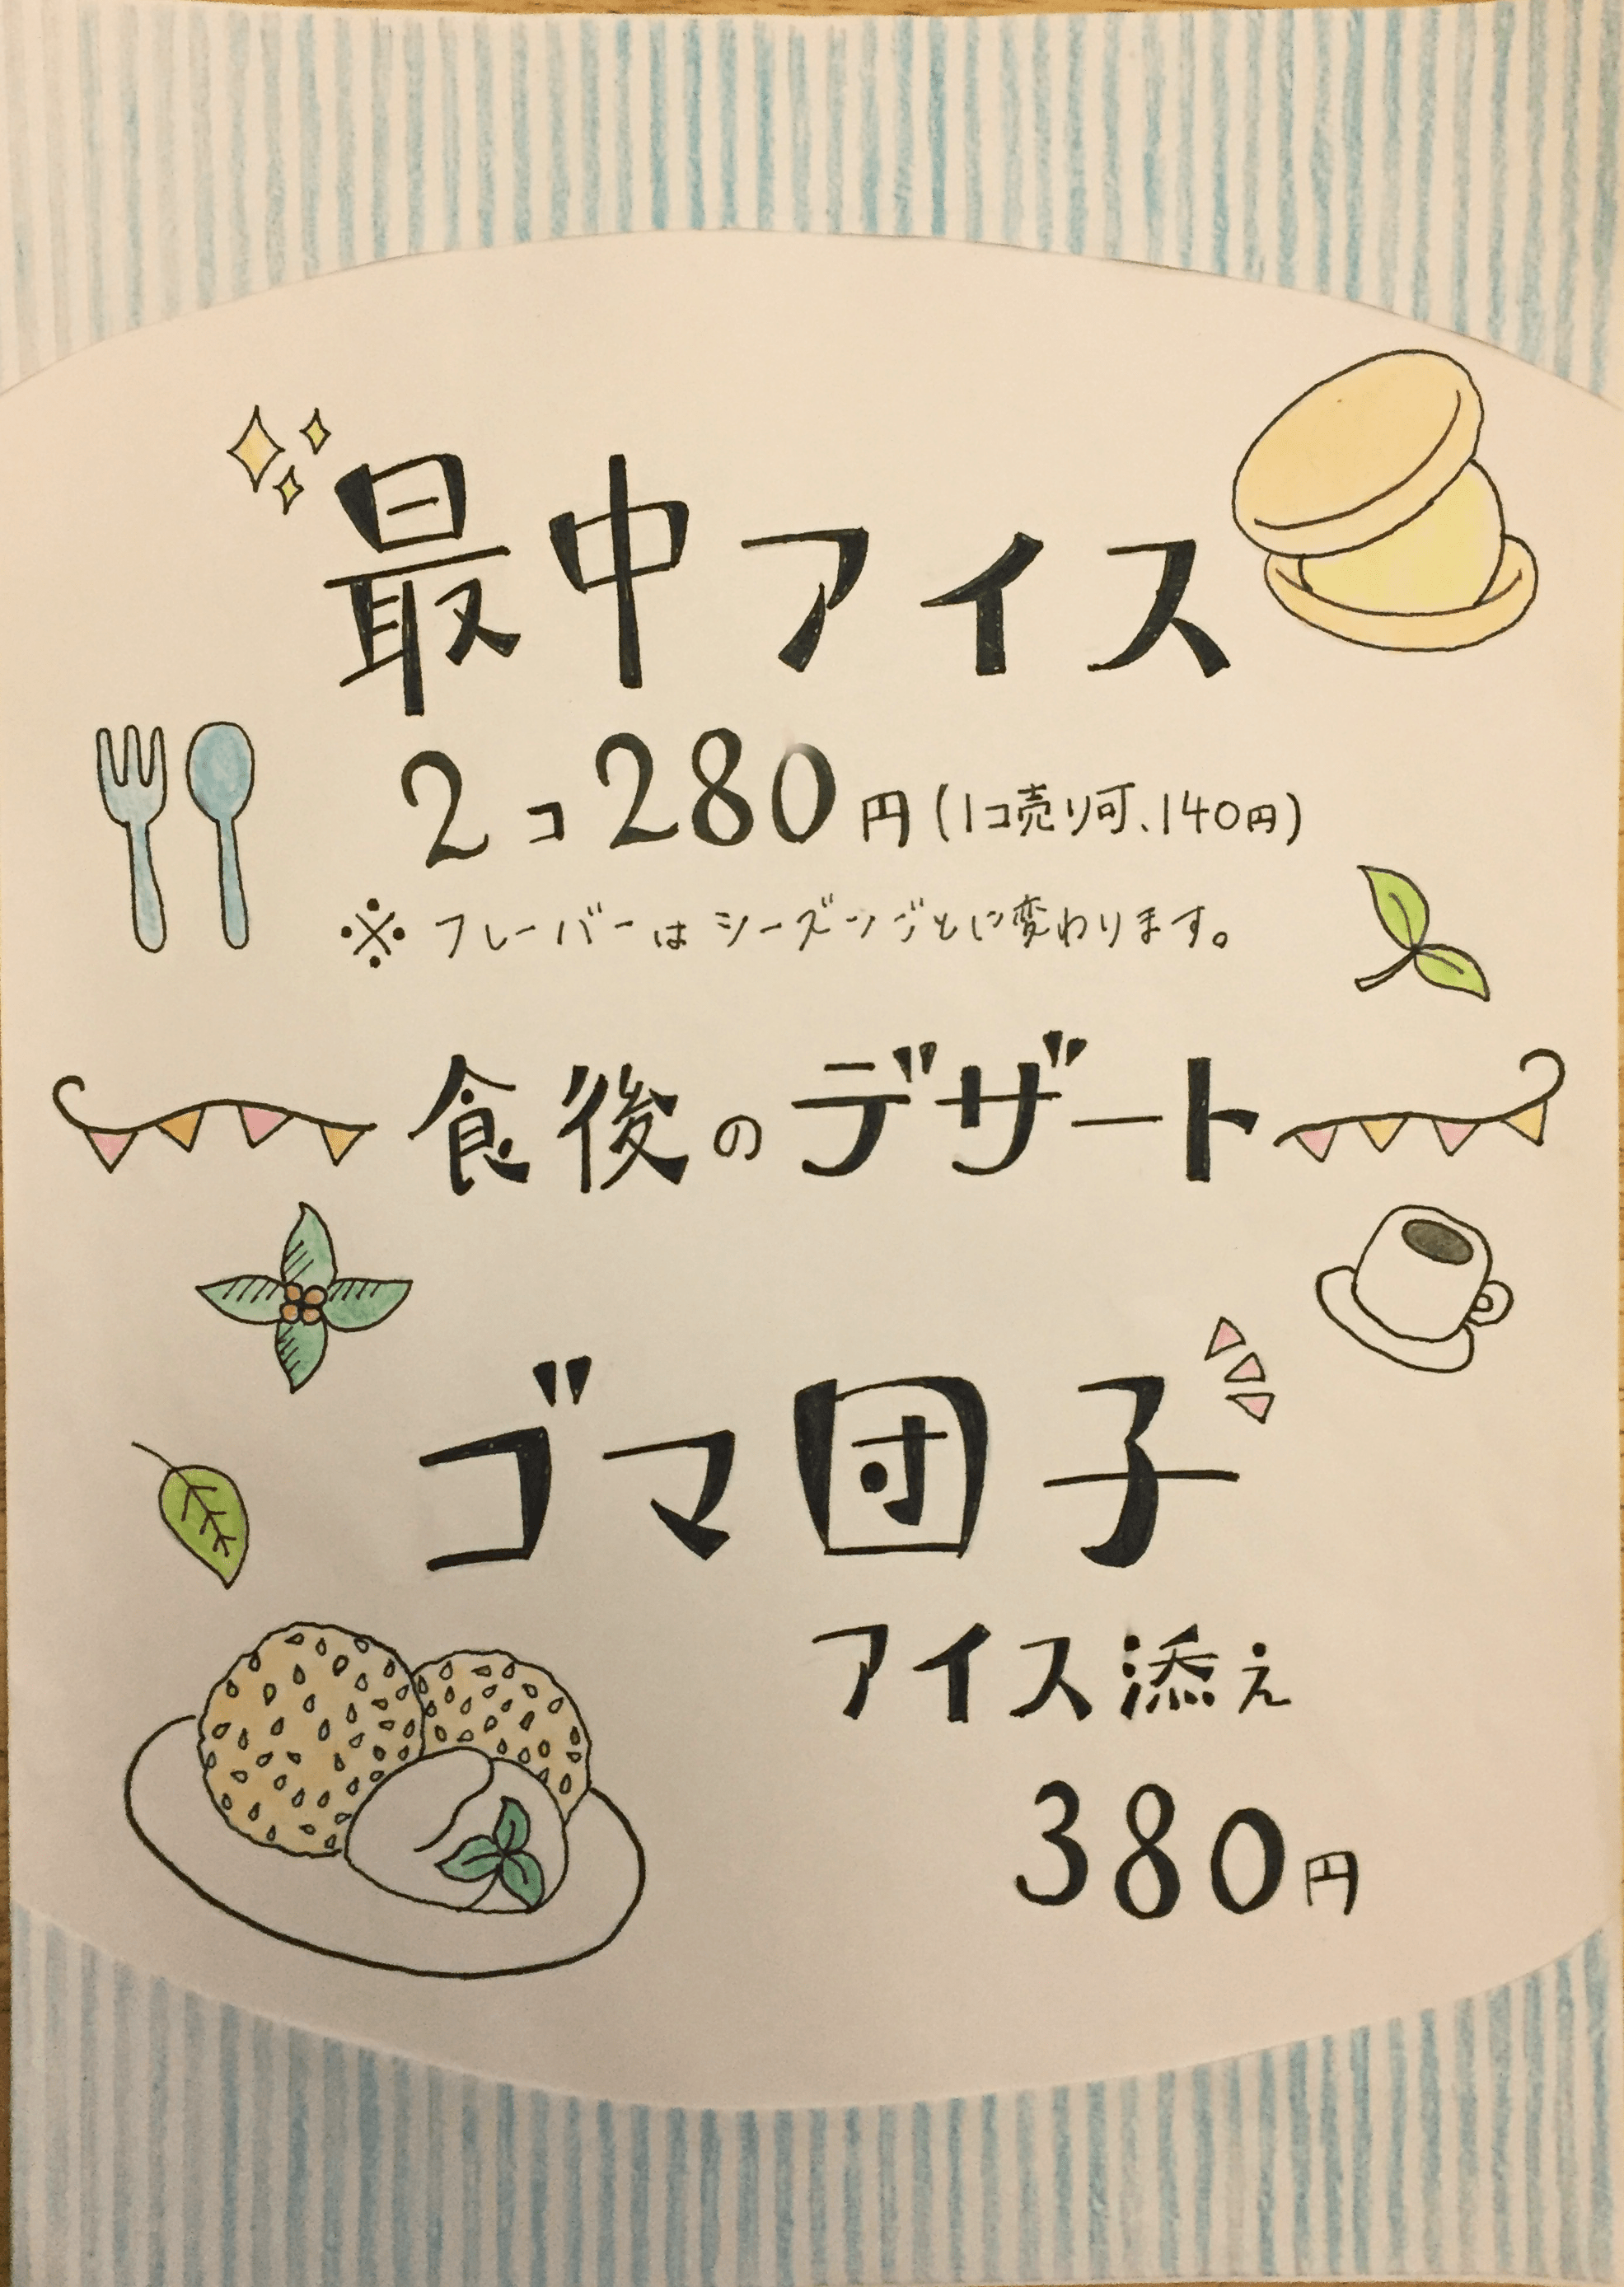 最中アイス
2コ280円(1コ売り可、140円)
※フレーバーはシーズンごとに変わります。
食後のデザート
ゴマ団子
アイス添え
380円